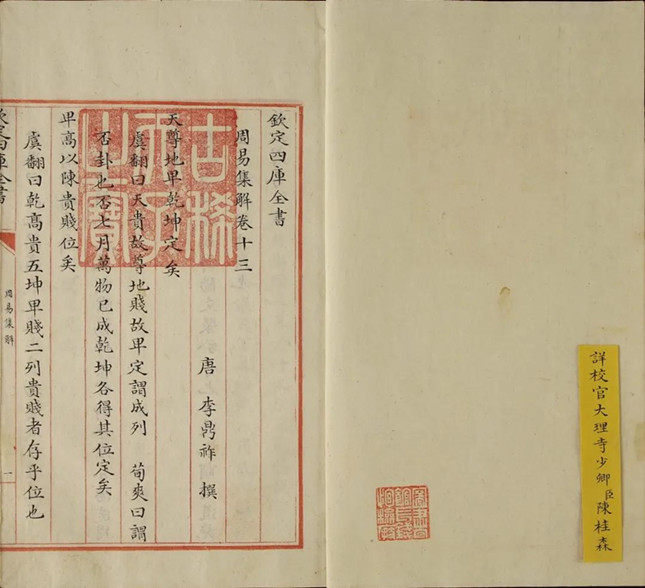 詳校官大理寺少卿臣陳桂森
欽定四庫全書
周易集解卷十三
唐 李鼎祚 撰
天尊地卑乾坤定矣
虞翻曰天貴故尊地賤故卑定謂成列 荀爽曰謂
否卦也否七月萬物已成乾坤各得其位定矣
卑高以陳貴賤位矣
虞翻曰乾高貴五坤卑賤二列貴賤者存乎位也
欽定四庫全書
周易集解
一
古稀
天子
之寶